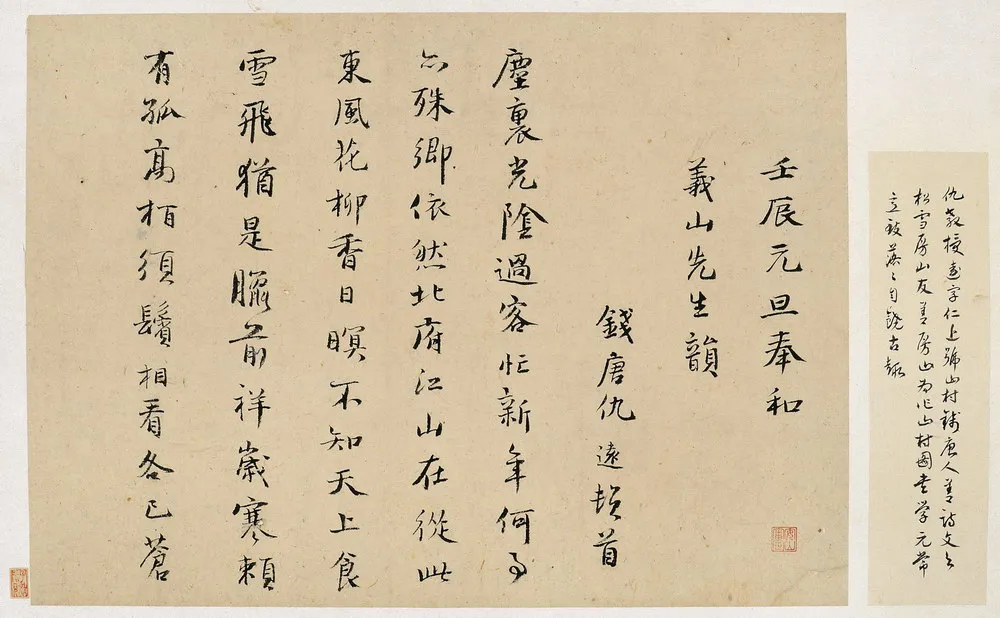 仇教授遠字仁上號山村錢唐人善詩文與
松雪房山友善房山為作山村圖書學元常
立致落〻自饒古趣
壬辰元旦奉和
義山先生韻
錢唐仇遠頓首
塵裏光陰過客忙新年何事
亦殊鄉依然北府江山在從此
東風花柳香日暝不知天上食
雪飛猶是臘前祥歲寒賴
有孤高栢須鬢相看各已蒼